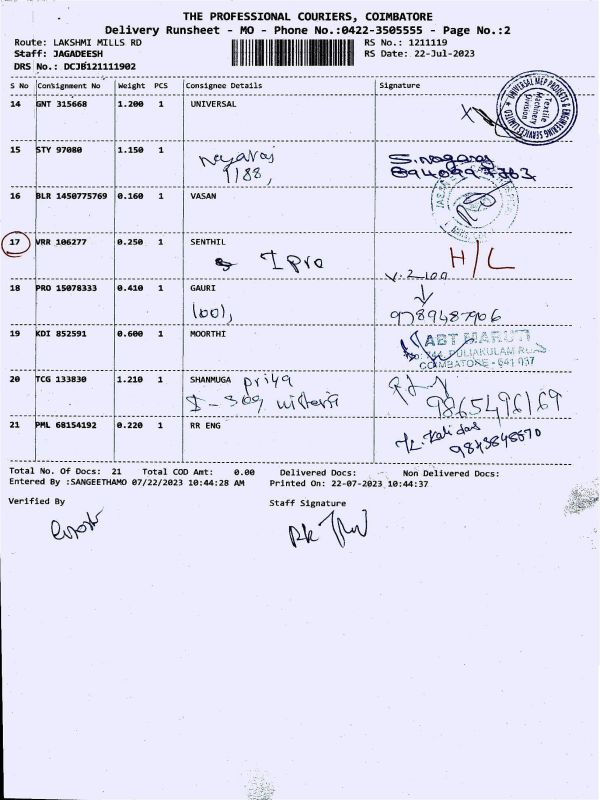 THE PROFESSIONAL COURIERS, COIMBATORE
Delivery Runsheet - MO - Phone No.:0422-3505555 - Page No.:2
Route: LAKSHMI MILLS RD RS No.: 1211119
Staff: JAGADEESH RS Date: 22-Jul-2023
DRS No.: DCJB121111902
S No Consignment No Weight PCS Consignee Details Signature
14 GNT 315668 1.200 1 UNIVERSAL
UNIVERSAL MEP PROJECTS & ENGINEERING SERVICES LIMITED
Textile
Machinery
Division
15 STY 97080 1.150 1
1188,
S. nagaraj
16 BLR 1450775769 0.160 1 VASAN
17 VRR 106277 0.250 1 SENTHIL
I pro H/L
18 PRO 15078333 0.410 1 GAURI
1001, 9789487906
19 KDI 852591 0.600 1 MOORTHI
ABT MARUTI
PULIAKULAM ROAD
COIMBATORE - 641 037
20 TCG 133830 1.210 1 SHANMUGA priya
I - 309 9865496169
21 PML 68154192 0.220 1 RR ENG
Total No. Of Docs: 21 Total COD Amt: 0.00 Delivered Docs: Non Delivered Docs:
Entered By :SANGEETHAMO 07/22/2023 10:44:28 AM Printed On: 22-07-2023 10:44:37
Verified By Staff Signature